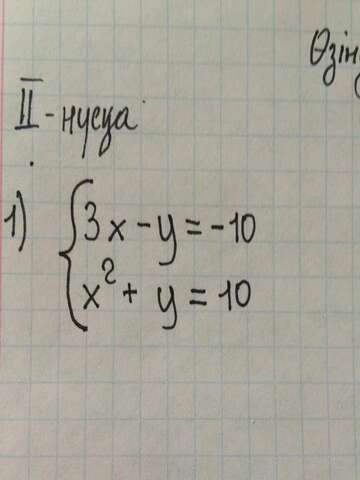 Өзін
II-нұсқа
1) { 3x - y = -10
x² + y = 10